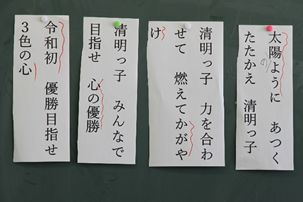 太陽のように あつく
たたかえ 清明っ子
清明っ子 力を合わ
せて 燃えてかがや
け
清明っ子 みんなで
目指せ 心の優勝
令和初 優勝目指せ
3色の心